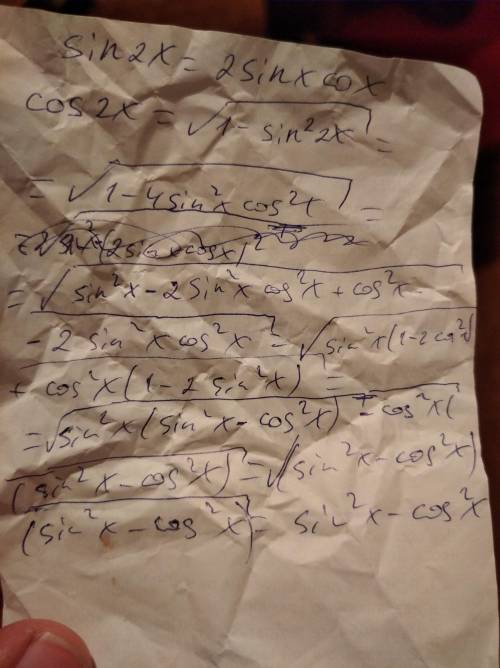 sin2x = 2sinx cox
cos2x = √1 - sin²2x =
= √1 - 4sin²x cos²x =
= √sin²x - 2sin²x cos²x + cos²x -
- 2 sin²x cos²x = √sin²x(1-2cos²x)
+ cos²x(1 - 2 sin²x) =
= √sin²x(sin²x - cos²x) - cos²x(
(sin²x - cos²x) = √(sin²x - cos²x)
(sin²x - cos²x) = sin²x - cos²x